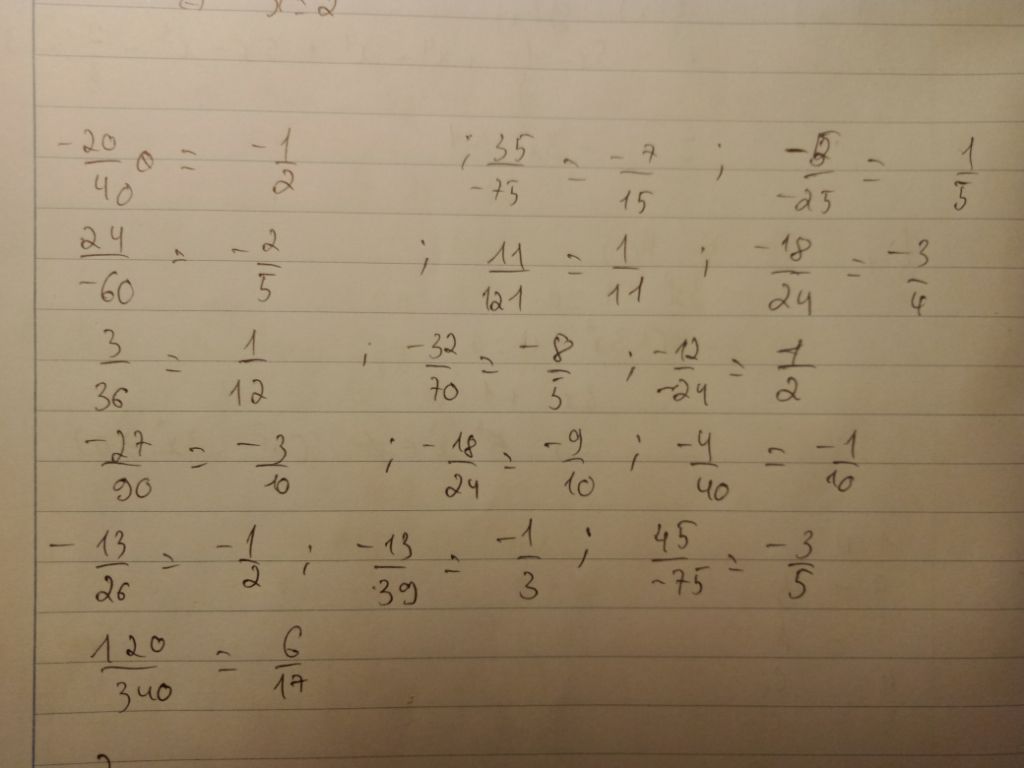 x=2
-20/40 = -1/2 ; 35/-75 = -7/15 ; -5/-25 = 1/5
24/-60 = -2/5 ; 11/121 = 1/11 ; -18/24 = -3/4
3/36 = 1/12 ; -32/70 = -8/5 ; -12/-24 = 1/2
-27/90 = -3/10 ; -18/24 = -9/10 ; -4/40 = -1/10
-13/26 = -1/2 ; -13/39 = -1/3 ; 45/-75 = -3/5
120/340 = 6/17